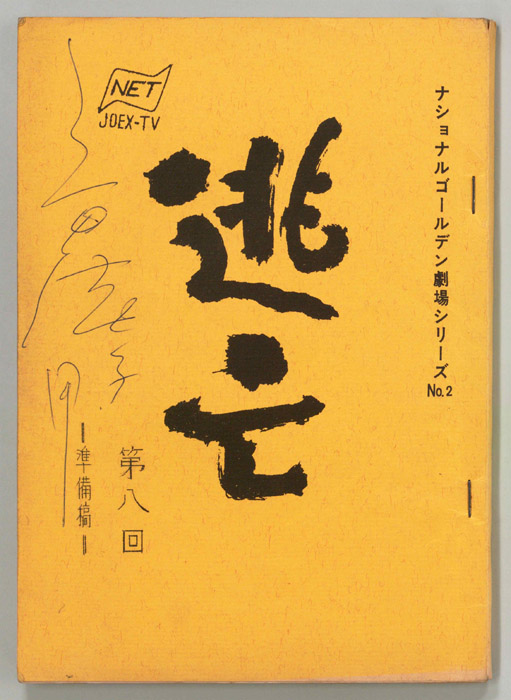 ナショナルゴールデン劇場シリーズ No.2
逃亡
NET
JOEX-TV
第八回
準備稿